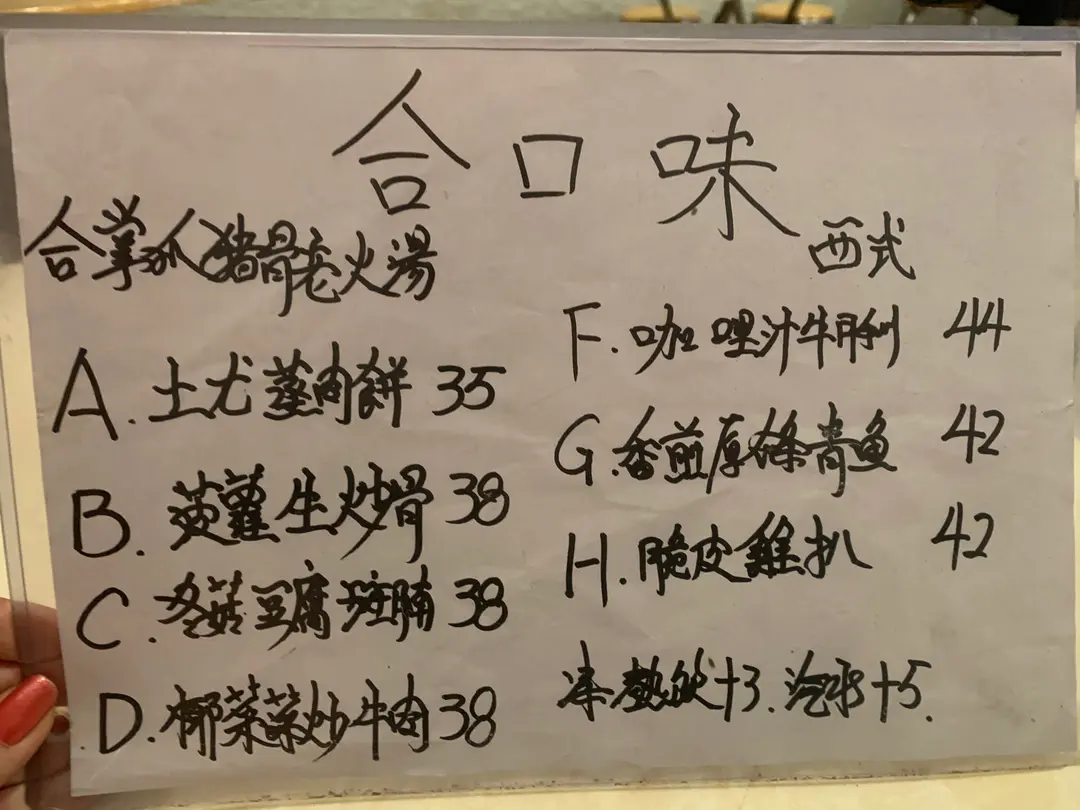 合口味
合掌瓜猪骨老火湯
A. 土尤蒸肉餅 35
B. 菠蘿生炒骨 38
C. 冬菇豆腐斑腩 38
D. 椰菜炒牛肉 38
西式
F. 咖哩汁牛脷 44
G. 香煎厚條青魚 42
H. 脆皮雞扒 42
凍熱飲+3. 汽水+5.